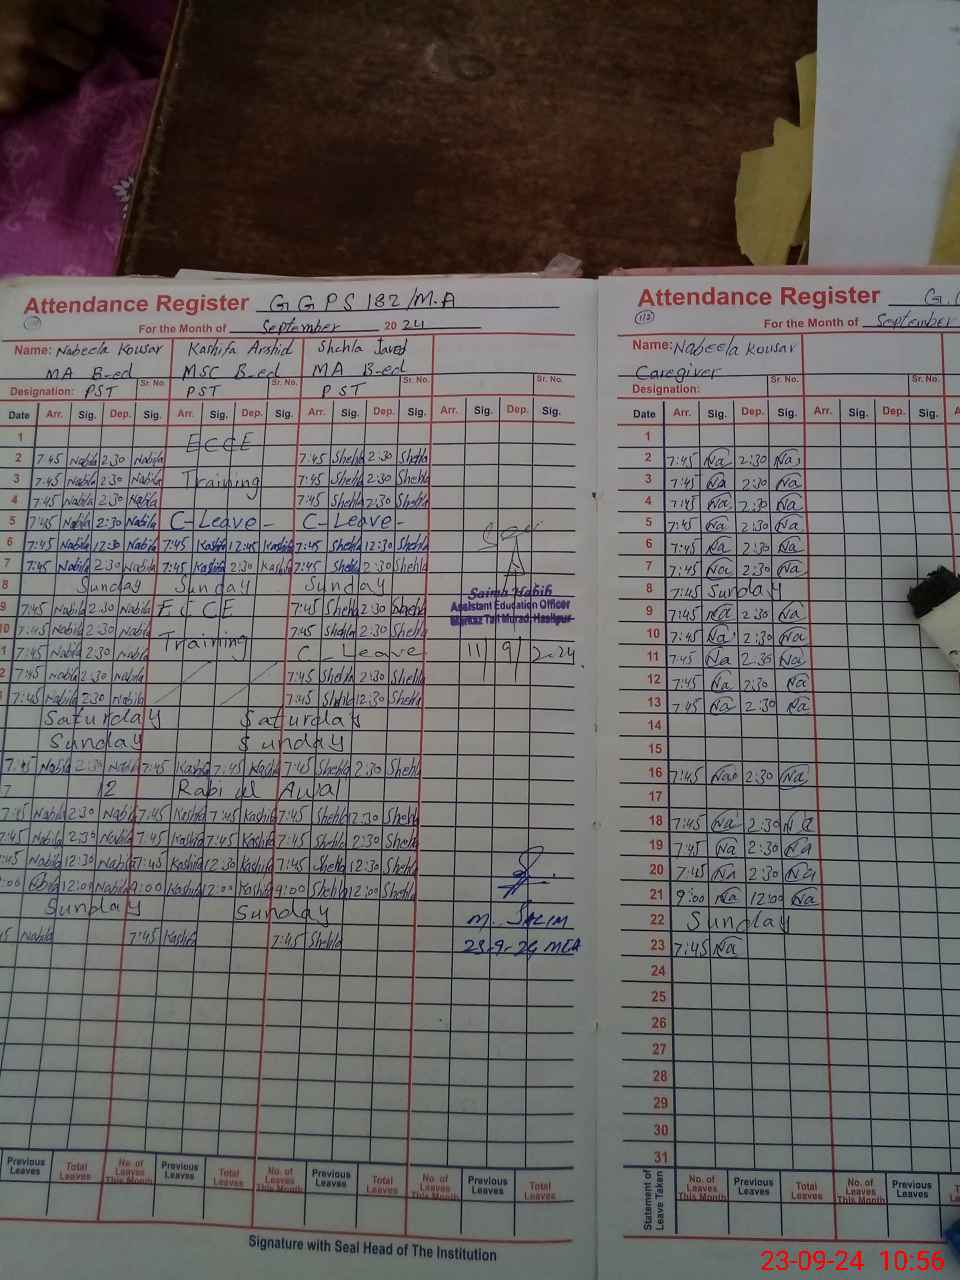 Attendance Register G G P S 182/M.A
For the Month of September 2024
Name: Nabeela Kousar Kashifa Arshid Shehla Javed
MA B-ed MSC B-ed MA B-ed
Sr. No. Sr. No. Sr. No. Sr. No.
Designation: PST PST PST
Date Arr. Sig. Dep. Sig. Arr. Sig. Dep. Sig. Arr. Sig. Dep. Sig. Arr. Sig. Dep. Sig.
1 ECCE
2 7:45 Nabila 2:30 Nabila 7:45 Shehla 2:30 Shehla
3 7:45 Nabila 2:30 Nabila Training 7:45 Shehla 2:30 Shehla
4 7:45 Nabila 2:30 Nabila 7:45 Shehla 2:30 Shehla
5 7:45 Nabila 2:30 Nabila C-Leave- C-Leave-
6 7:45 Nabila 12:30 Nabila 7:45 Kashifa 12:45 Kashifa 7:45 Shehla 12:30 Shehla
7 7:45 Nabila 2:30 Nabila 7:45 Kashifa 2:30 Kashifa 7:45 Shehla 2:30 Shehla
8 Sunday Sunday Sunday
Saima Habib
Assistant Education Officer
Markaz Tail Murad, Hasilpur
9 7:45 Nabila 2:30 Nabila ECCE 7:45 Shehla 2:30
10 7:45 Nabila 2:30 Nabila Training 7:45 Shehla 2:30 Shehla
1 7:45 Nabila 2:30 Nabila C-Leave 11/9/2024
2 7:45 Nabila 2:30 Nabila 7:45 Shehla 2:30 Shehla
7:45 Nabila 2:30 Nabila 7:45 Shehla 12:30 Shehla
Saturday Saturday
Sunday Sunday
7:45 Nabila 2:30 Nabila 7:45 Kashifa 7:45 Kashifa 7:45 Shehla 2:30 Shehla
7 12 Rabi ul Awal
7:45 Nabila 2:30 Nabila 7:45 Kashifa 7:45 Kashifa 7:45 Shehla 2:30 Shehla
7:45 Nabila 2:30 Nabila 7:45 Kashifa 7:45 Kashifa 7:45 Shehla 2:30 Shehla
:45 Nabila 12:30 Nabila 7:45 Kashifa 12:30 Kashifa 7:45 Shehla 12:30 Shehla
:00 Nabila 12:00 Nabila 9:00 Kashifa 12:00 Kashifa 9:00 Shehla 12:00 Shehla
Sunday Sunday
M. SALIM
45 Nabila 7:45 Kashifa 7:45 Shehla
23-9-24 MEA
Previous Leaves Total Leaves No. of Leaves This Month Previous Leaves Total Leaves No. of Leaves This Month Previous Leaves Total Leaves No. of Leaves This Month Previous Leaves Total Leaves
Signature with Seal Head of The Institution
Attendance Register G.
112
For the Month of September
Name: Nabeela Kousar
Caregiver
Designation: Sr. No. Sr. No.
Date Arr. Sig. Dep. Sig. Arr. Sig. Dep. Sig. A
1
2 7:45 Na 2:30 Na
3 7:45 Na 2:30 Na
4 7:45 Na 2:30 Na
5 7:45 Na 2:30 Na
6 7:45 Na 2:30 Na
7 7:45 Na 2:30 Na
8 7:45 Sunday
9 7:45 Na 2:30 Na
10 7:45 Na 2:30 Na
11 7:45 Na 2:35 Na
12 7:45 Na 2:30 Na
13 7:45 Na 2:30 Na
14
15
16 7:45 Na 2:30 Na
17
18 7:45 Na 2:30 Na
19 7:45 Na 2:30 Na
20 7:45 Na 2:30 Na
21 9:00 Na 12:00 Na
22 Sunday
23 7:45 Na
24
25
26
27
28
29
30
31
Statement of Leave Taken No. of Leaves This Month Previous Leaves Total Leaves No. of Leaves This Month Previous Leaves T
Le
23-09-24 10:56